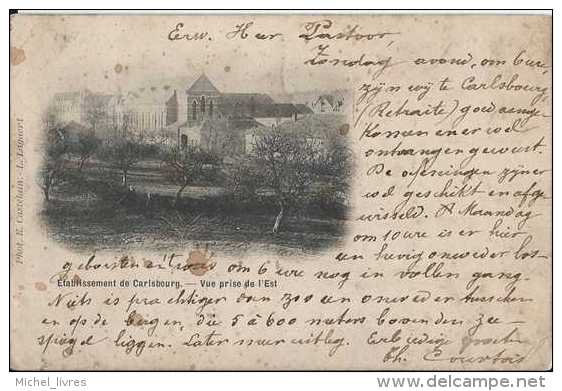 Erw. Heer Pastoor,
Zondag avond, om 6 ure,
zijn wij te Carlsbourg
(Retraite) goed aange-
komen en er wel
ontvangen geweest.
De oefeningen zijn er
wel geschikt en afge
wisseld. Maandag
om 10 ure is er hier
een hevig onweder los-
geborsten en was om 6 ure nog in vollen gang.
Niets is prachtiger dan zoo een onweder tusschen
en op de bergen, die 5 à 600 meters boven den zee-
spiegel liggen. Later meer uitleg. Eerbiedige groeten
Th. Courtois
Etablissement de Carlsbourg. — Vue prise de l'Est
Phot. E. Castelain.
Michel_livres
delcampe.net